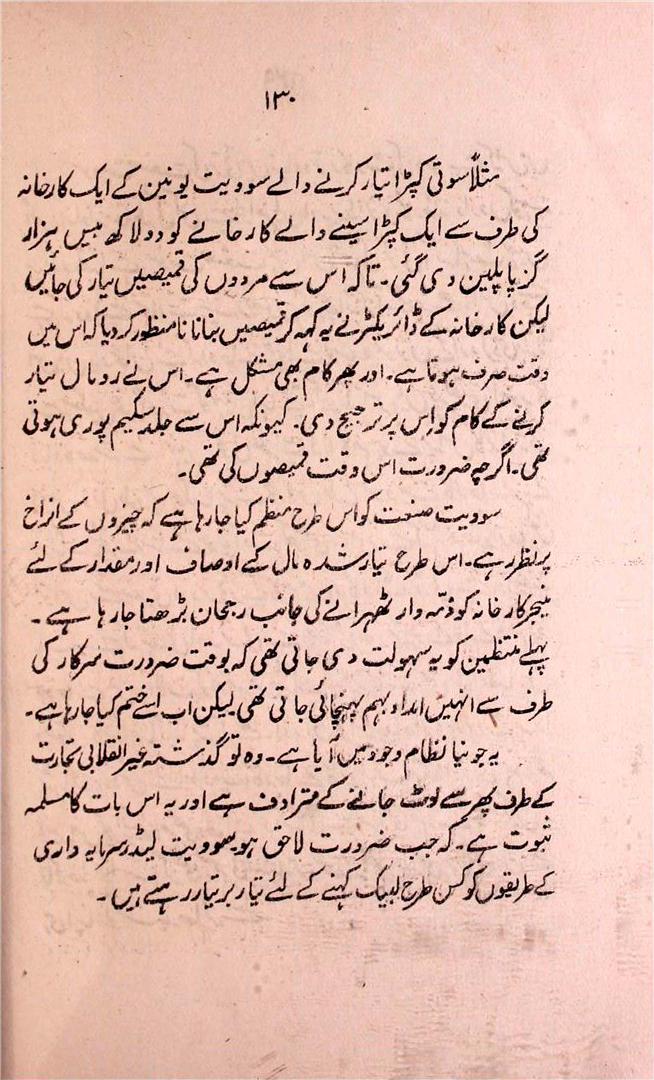 ۱۳۰
مثلاً سوتی کپڑا تیار کرنے والے سوویت یونین کے ایک کارخانہ
کی طرف سے ایک کپڑا سینے والے کارخانے کو دو لاکھ بیس ہزار
گز پاپلین دی گئی۔ تاکہ اس سے مردوں کی قمیصیں تیار کی جائیں
لیکن کارخانہ کے ڈائریکٹر نے یہ کہہ کر قمیصیں بنانا نا منظور کر دیا کہ اس میں
وقت صرف ہوتا ہے۔ اور پھر کام بھی مشکل ہے۔ اس نے رومال تیار
کرنے کے کام کو اِس پر ترجیح دی۔ کیونکہ اس سے جلد سکیم پوری ہوتی
تھی۔ اگرچہ ضرورت اس وقت قمیصوں کی تھی۔
سوویت صنعت کو اس طرح منظم کیا جا رہا ہے کہ چیزوں کے نراخ
پر نظر رہے۔ اس طرح تیار شدہ مال کے اوصاف اور مقدار کے لئے
منیجر کارخانہ کو ذمّہ دار ٹھہرانے کی جانب رجحان بڑھتا جا رہا ہے۔
پہلے منتظمین کو یہ سہولت دی جاتی تھی کہ بوقت ضرورت سرکار کی
طرف سے انہیں امداد بہم پہنچائی جاتی تھی لیکن اب اسے ختم کیا جا رہا ہے۔
یہ جو نیا نظام وجود میں آیا ہے۔ وہ تو گذشتہ غیر انقلابی تجارت
کے طرف پھر سے لوٹ جانے کے مترادف ہے اور یہ اس بات کا مسلمہ
ثبوت ہے۔ کہ جب ضرورت لاحق ہو سوویت لیڈر سرمایہ داری
کے طریقوں کو کس طرح لبیک کہنے کے لئے تیار بر تیار رہتے ہیں۔